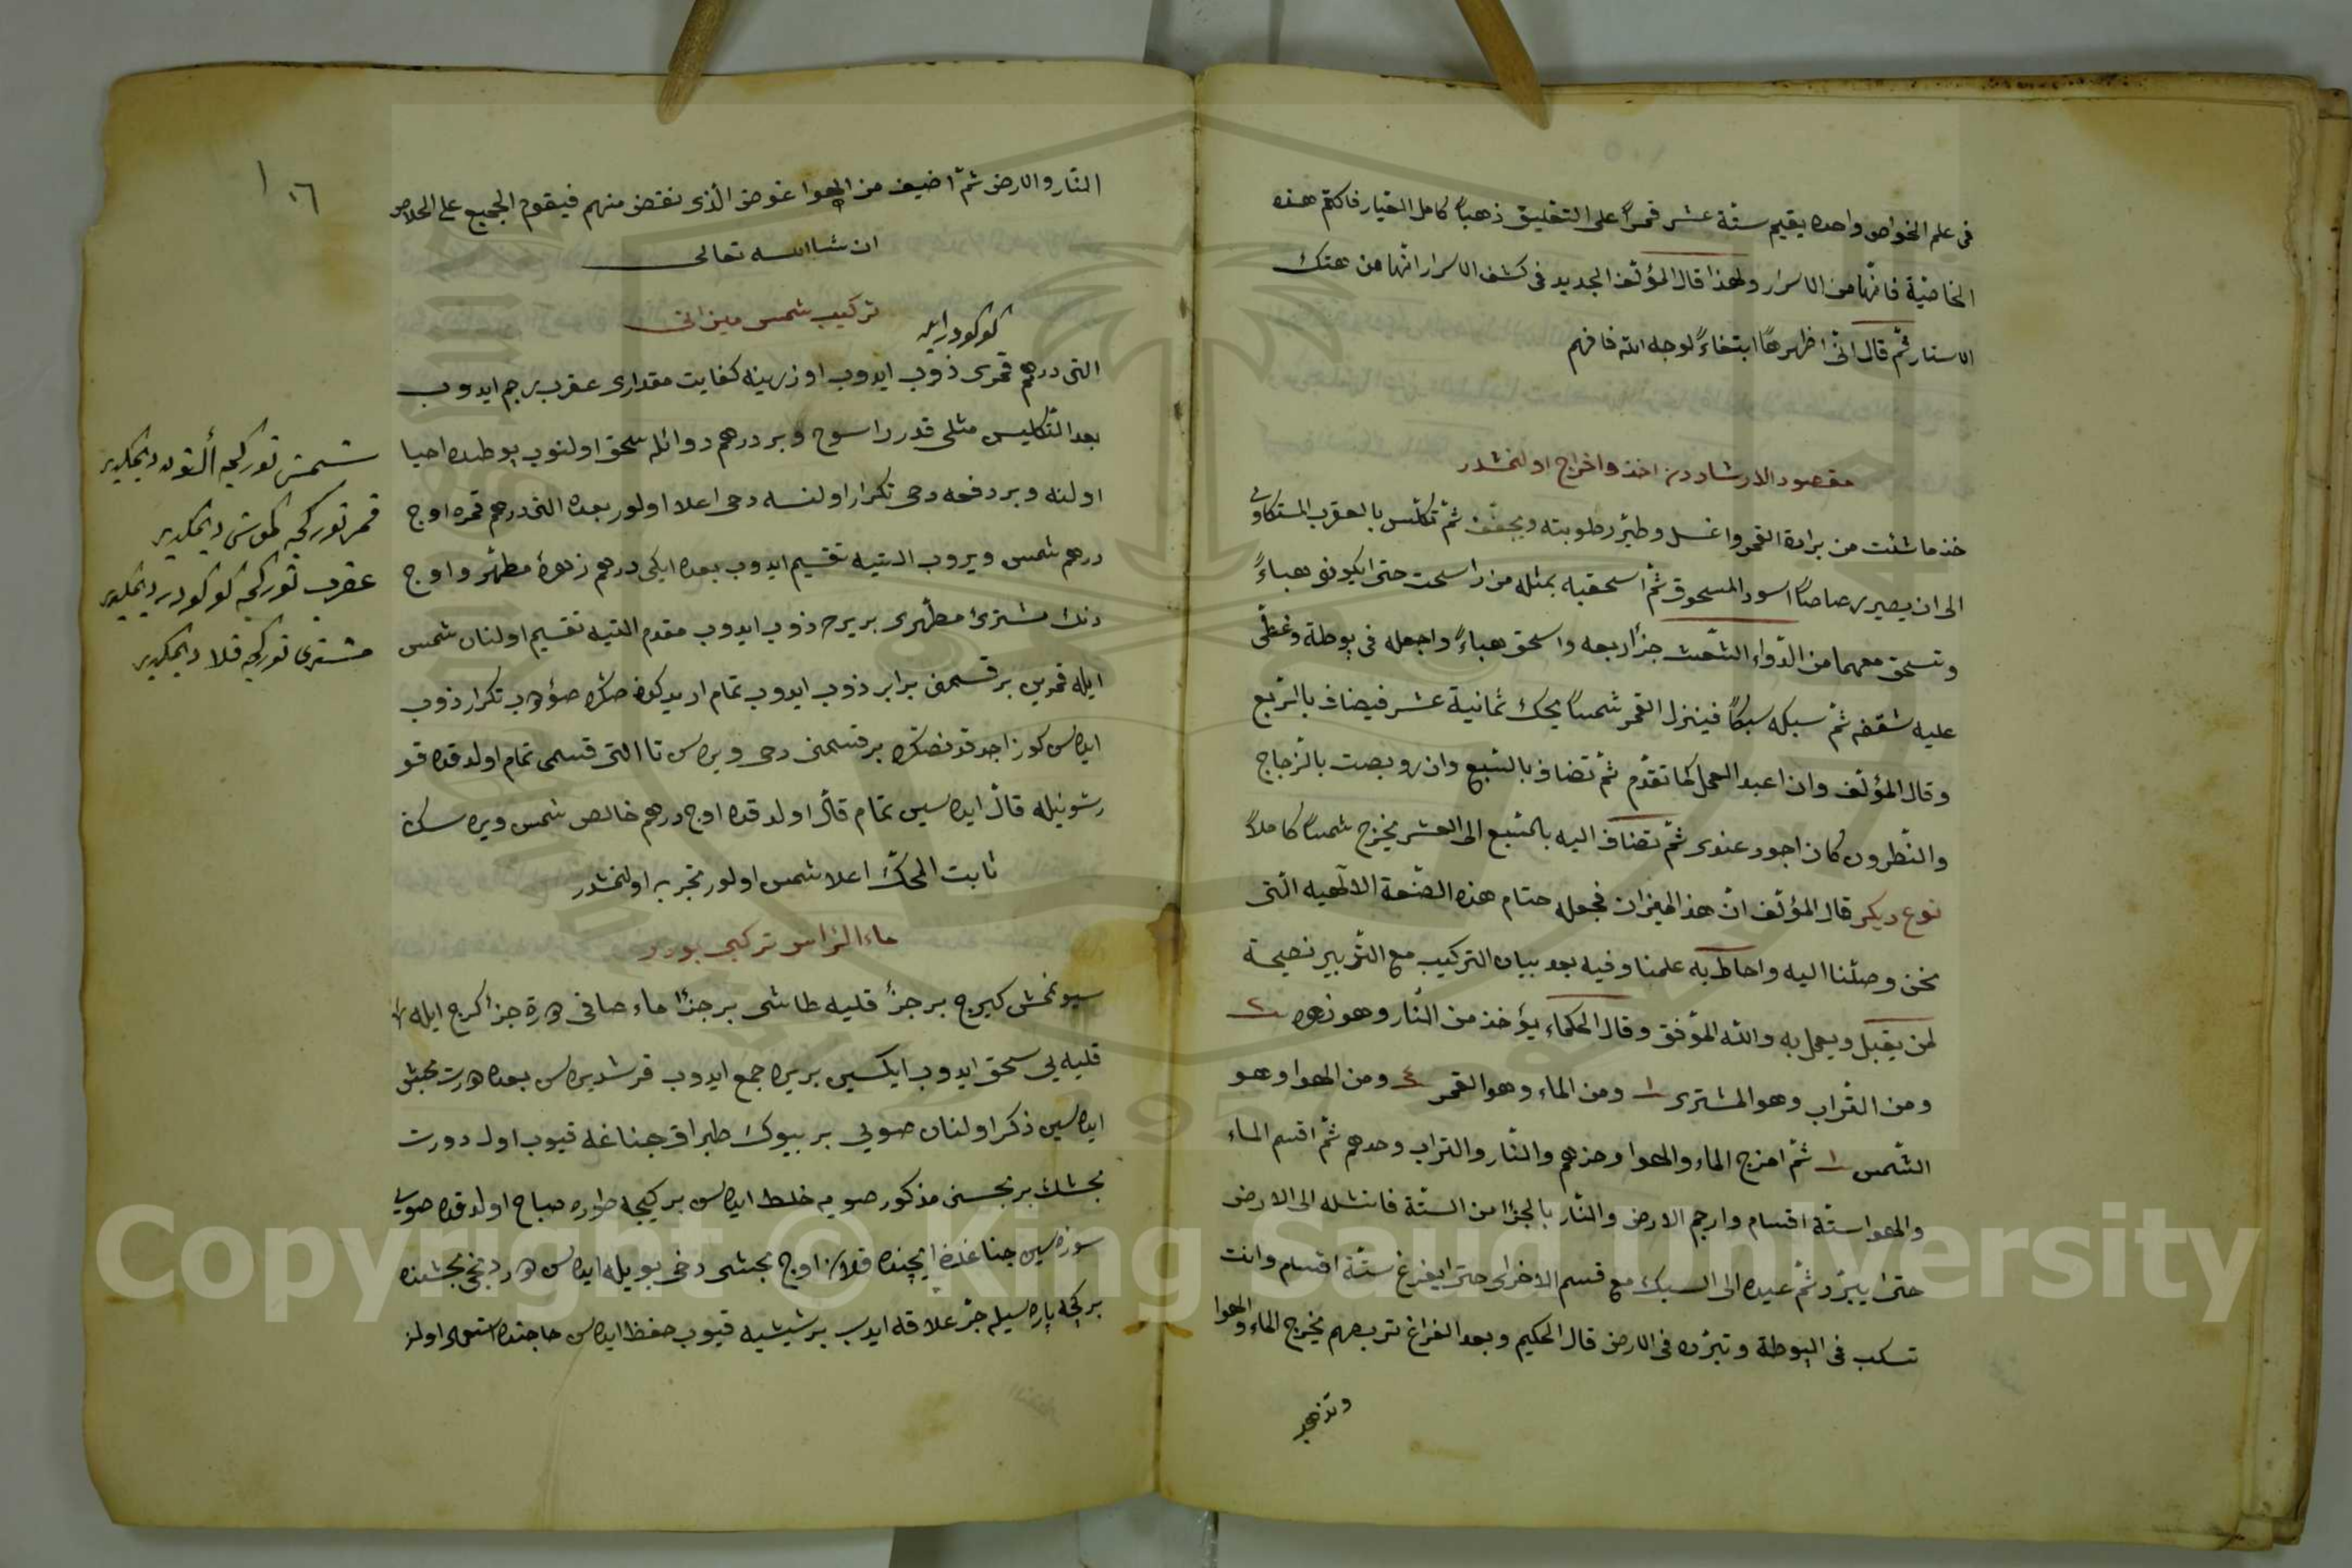 فى علم الخواص واحده يقيم ستّة عشر قمراً على التخليق ذهباً كامل العيار فاكتم هذه
الخاصّيّة فانّها من الاسرار ولهذا قال المؤلّف الجديد فى كشف الاسرار انّها من هتك
الاستار ثمّ قال انّى اظهرهاً ابتغاءً لوجه الله فافهم
مقصود الارشاددن اخذ واخراج اولنمشدر
خذ ما شئت من برادة القمر واغسل وطيّر رطوبته ويجفّف ثمّ تكلّس بالعقرب
الى ان يصير رصاصاً اسود المسحوق ثمّ اسحقبه بمثله من راسحت حتى ايكونو هباءً
وتسحق معهما من الدّواء الشّعث جزأ اربعه واسحق هباءً واجعله فى بوطة وغطّى
عليه شقفه ثمّ سبكه سبكاً فينزل القمر شمساً يحك ثمانية عشر فيضاف بالرّبع
وقال المؤلّف وان اعيد العمل كما تقدّم ثمّ تضاف بالسّبع وان روبصت بالزّجاج
والنّطرون كان اجود عندى ثمّ تضاف اليه بالسّبع الى العشر يخرج شمساً كاملاً
نوع ديكر قال المؤلّف انّ هذ الميزان فجعله ختام هذه الصّنعة الالهيه الّتى
نحن وصلنا اليه واحاط به علمنا وفيه بعد بيان التركيب مع التّدبير نصيحة
لمن يقبل ويعمل به والله الموّفق وقال الحكماء يؤخذ من النّار وهو زهره ٢
ومن التّراب وهو المشترى ١ ومن الماء وهو القمر ٤ ومن الهوا وهو
الشّمس ١ ثمّ امزج الماء والهوا وحزهم والنّار والتراب وحدهم ثمّ اقسم الماء
والهوا ستّة اقسام وارجم الارض والنّار بالجزأ من الستّة فانشله الى الارض
حتى ايبرّد ثمّ عيده الى السبك مع قسم الاخرى حتى ايفرغ ستّة اقسام وانت
تسكب فى البوطة وتبرّده فى الارض قال الحكيم وبعد الفراغ تربصهم يخرج الماء والهوا
١٠٦
النّار والارض ثمّ اضيف من الهوا عوض الّذى نقص منهم فيقوم الجميع على الخلاص
ان شاالله تعالى
تركيب شمس ميزانى
كوكورد ايله
التى درهم قمرى ذوب ايدوب اوزرينه كفايت مقدارى عقرب رجم ايدوب
بعد التّكليس مثلى قدر راسوح وبر درهم دوائله سحق اولنوب بوطىده احيا
اولنه وبر دفعه دحى تكرار اولنسه دحى اعلا اولور بعده التى درهم قمره اوج
درهم شمس ويروب التيه تقسيم ايدوب بعده ايكى درهم زهرۀ مطهّر واوج
دنك مشترئ مطهّرى بريره ذوب ايدوب مقدم التيه تقسيم اولنان شمس
ايله قمردن بر قسمنى برابر ذوب ايدوب تمام اريدكدن صكره صؤدب تكرار ذوب
ايده سن كوز اجدقدنصكره بر قسمنى دحى ويره سن تا التى قسمى تمام اولدقده قو
رشونيله قال ايده سين تمام قال اولدقده اوج درهم خالص شمس ويره سن
ثابت المحكّ اعلا شمس اولور تجربه اولنمشدر
ماء الراس تركبى بودر
سيونمش كيرج بر جزأ قليه طاشى بر جزأ ماء صافى درت جزأ كرج ايله
قليه يى سحق ايدوب ايكسين بريره جمع ايدوب قرشديره سن بعده درت بخش
ايده سين ذكر اولنان صويى بر بيوك طبراق جناغه قيوب اول دورت
بخشك بر بخسنى مذكور صويه خلط ايده سن بر كيجه طوره صباح اولدقده صويى
سوزه سين جناغده ايچنده قلان اوج بخشى دخى بويله ايده سن دردنجى بخشنده
بر كجه پاره سيله جزء علاقه ايدب بر شيشيه قيوب حفظ ايده سن حاجتده استعمال اولنر
شمس توركجه ألتون ديمكدر
قمر توركجه كموش ديمكدر
عقرب توركجه كوكورد ديمكدر
مشترى توركجه قلاى ديمكدر
Copyright © King Saud University